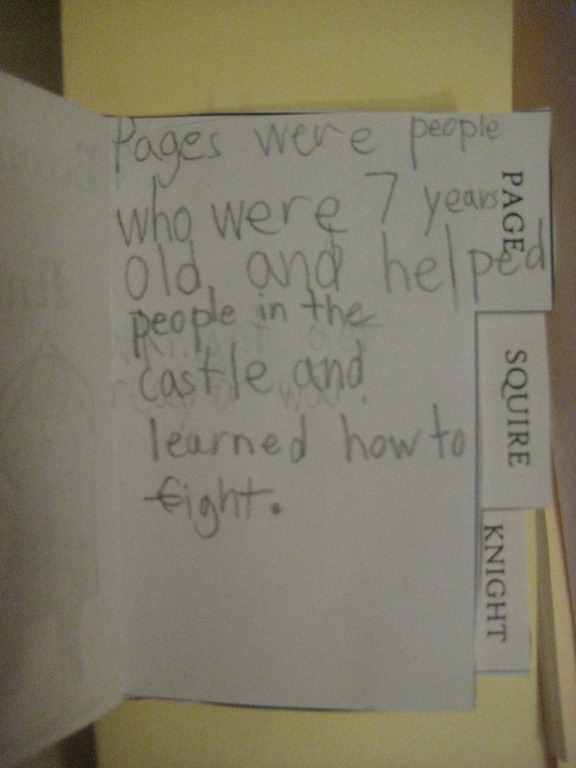 Pages were people
who were 7 years
old, and helped
people in the
castle and
learned how to
fight.
PAGE
SQUIRE
KNIGHT